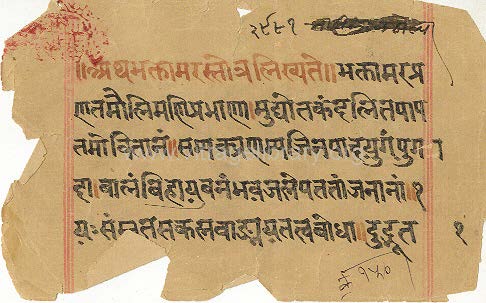 २९८१
॥अथभक्तामरस्तोत्रलिख्यते॥भक्तामरप्र
णतमौलिमणिप्रभाणामुद्योतकंदलितपाप
तमोवितानं॥सम्यक्प्रणम्यजिनपादयुगंयुगा
दावालंबनंभवजलेपततांजनानां॥१
यःसंस्तुतसकलवाङ्मयतत्वबोधा॥दुद्भूत १
१५०